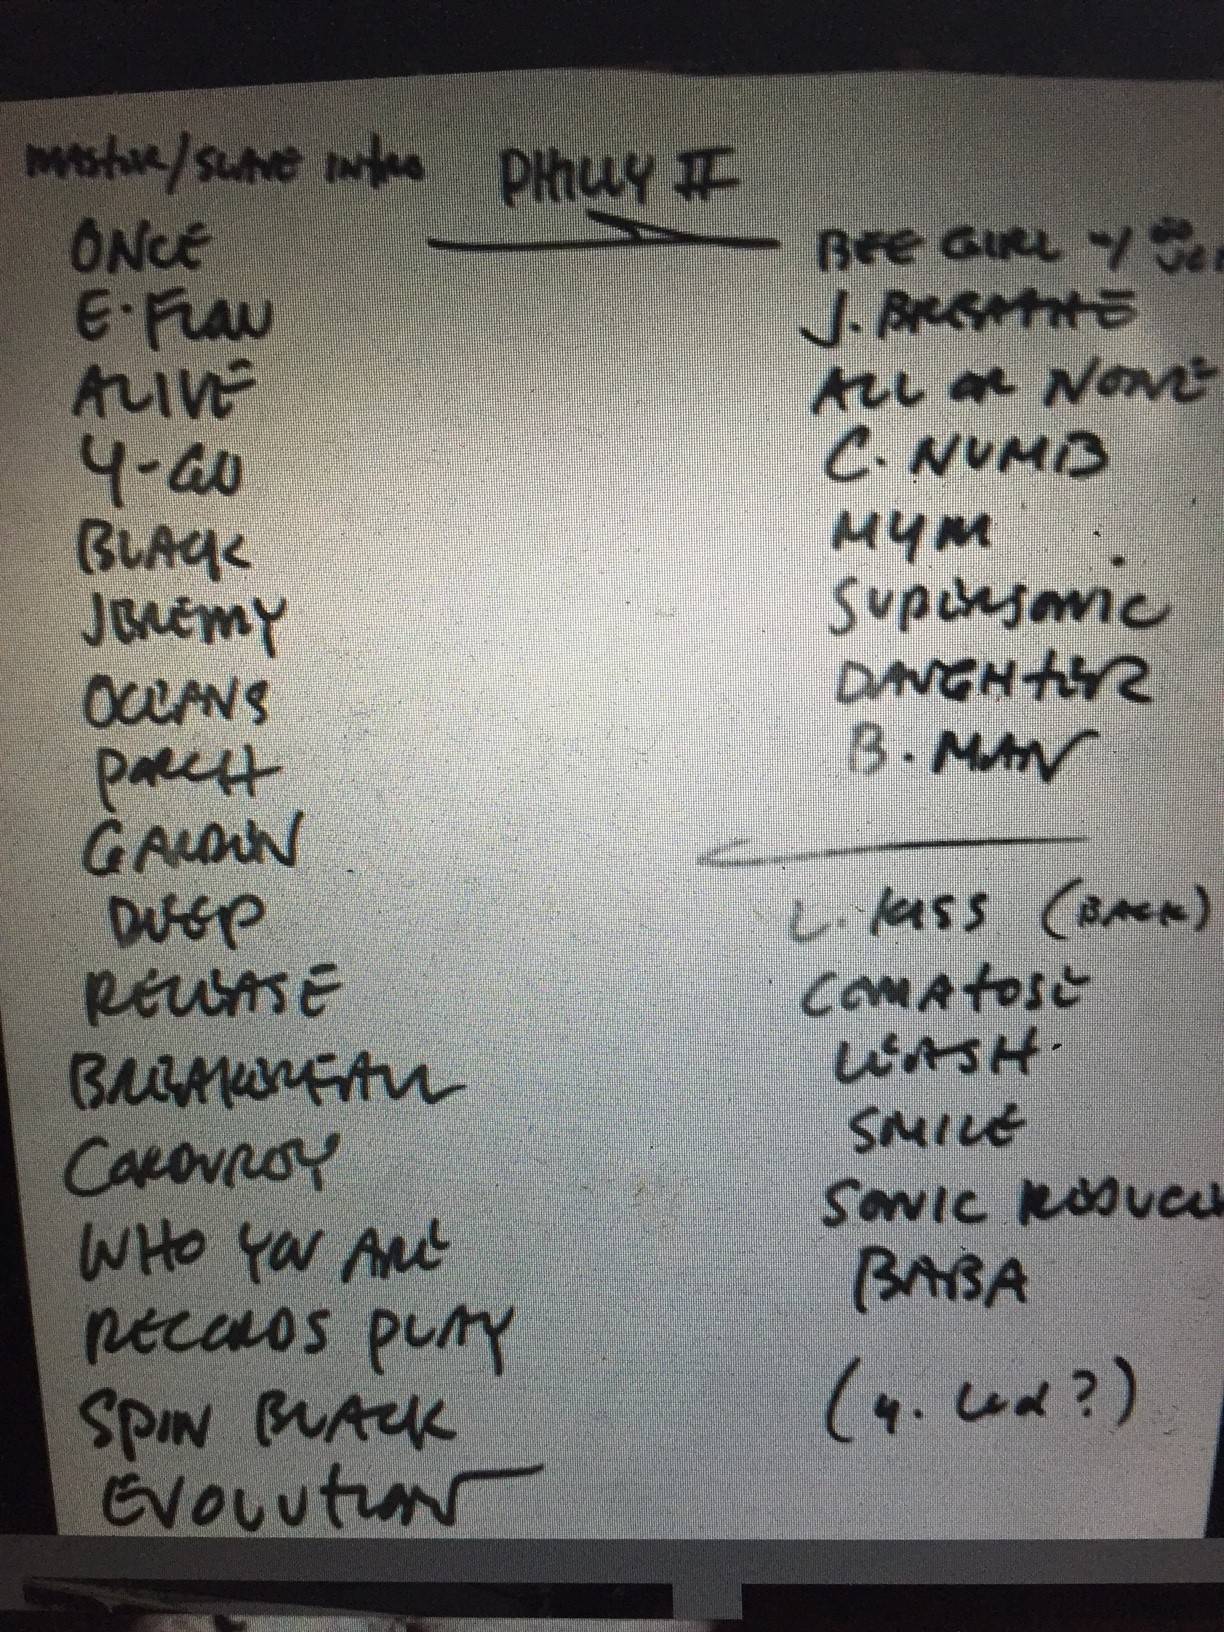 MASTER/SLAVE INTRO
PHILLY II
ONCE
E. FLOW
ALIVE
Y-GO
BLACK
JEREMY
OCEANS
PORCH
GARDEN
DEEP
RELEASE
BREAKERFALL
CORDUROY
WHO YOU ARE
RECORDS PLAY
SPIN BLACK
EVOLUTION
BEE GIRL w/
J. BREATHE
ALL OR NONE
C. NUMB
MYM
SUPERSONIC
DAUGHTER
B. MAN
L. KISS (BACK)
COMATOSE
LEASH.
SMILE
SONIC REDUCER
BABA
(Y. Led?)